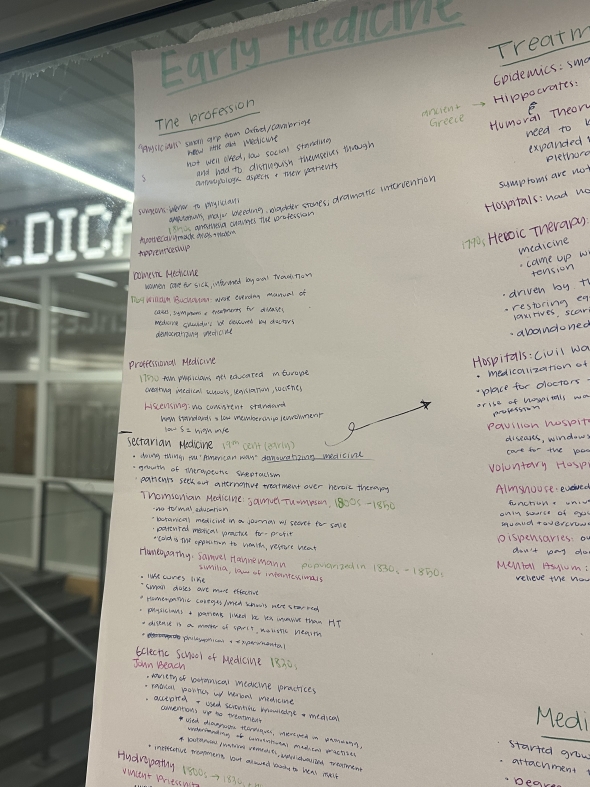 Early Medicine
The profession
"Physicians" small grp from Oxford/Cambridge
knew little abt medicine
not well liked, low social standing
and had to distinguish themselves through
aspects + their patients
surgeons: inferior to physicians
amputations, major bleeding, bladder stones, dramatic intervention
anesthesia changes the profession
Apprenticeship
Domestic Medicine
women care for sick, informed by oral tradition
William Buchanan: wrote everyday manual of
care, symptoms + treatments for diseases
medicine shouldn't be devoured by doctors
democratizing medicine
Professional Medicine
1750 physicians get educated in Europe
creating medical schools, legislation, societies
Liscensing: no consistent standard
high standards = low membership/enrollment
low S = high M/E
Sectarian Medicine 19th cent (early)
• doing things the "American way" democratizing medicine
• growth of therapeutic skepticism
• patients seek out alternative treatment over heroic therapy
Thomsonian Medicine: Samuel Thompson, 1800s - 1850
• no formal education
• botanical medicine in a journal w/ secret for sale
• patented medical practice for-profit
• cold is the opposition to health, restore heat
Homeopathy: Samuel Hannemann popularized in 1830s - 1850s
similia, law of infantessimals
• like cures like
• small doses are more effective
• homeopathic colleges/med schools were started
• physicians + patients liked bc less invasive than HT
• disease is a matter of spirit, holistic health
• philosophical + experimental
Eclectic School of Medicine 1820s
John Beach
• variety of botanical medicine practices
• radical politics w/ herbal medicine
• accepted + used scientific knowledge + medical
conventions up to treatment
* used diagnostic techniques, interested in pathology,
understanding of conventional medical practices
* botanical/natural remedies, individualized treatment
• ineffective treatments but allowed body to heal itself
Hydropathy: 1800s → 1830
Vincent
Treatm
Epidemics: sma
ancient Greece → Hippocrates:
Humoral Theory
need to b
expanded
plethora
symptoms are not
Hospitals: had no
1770s Heroic Therapy:
medicine
• came up w
tension
• driven by th
• restoring eq
laxitives, scari
• abandoned
Hospitals: Civil Wa
• medicalization of
• place for doctors
• rise of hospitals w
profession
Pavilion Hospita
diseases, windows
care for the po
Voluntary Hospi
Almshouse: evolved
function + univ
only source of
squalid + overcrow
Dispensaries: ou
don't pay do
Mental Asylum:
relieve the
Medi
started grow
• attachment
• Degree
EDICA